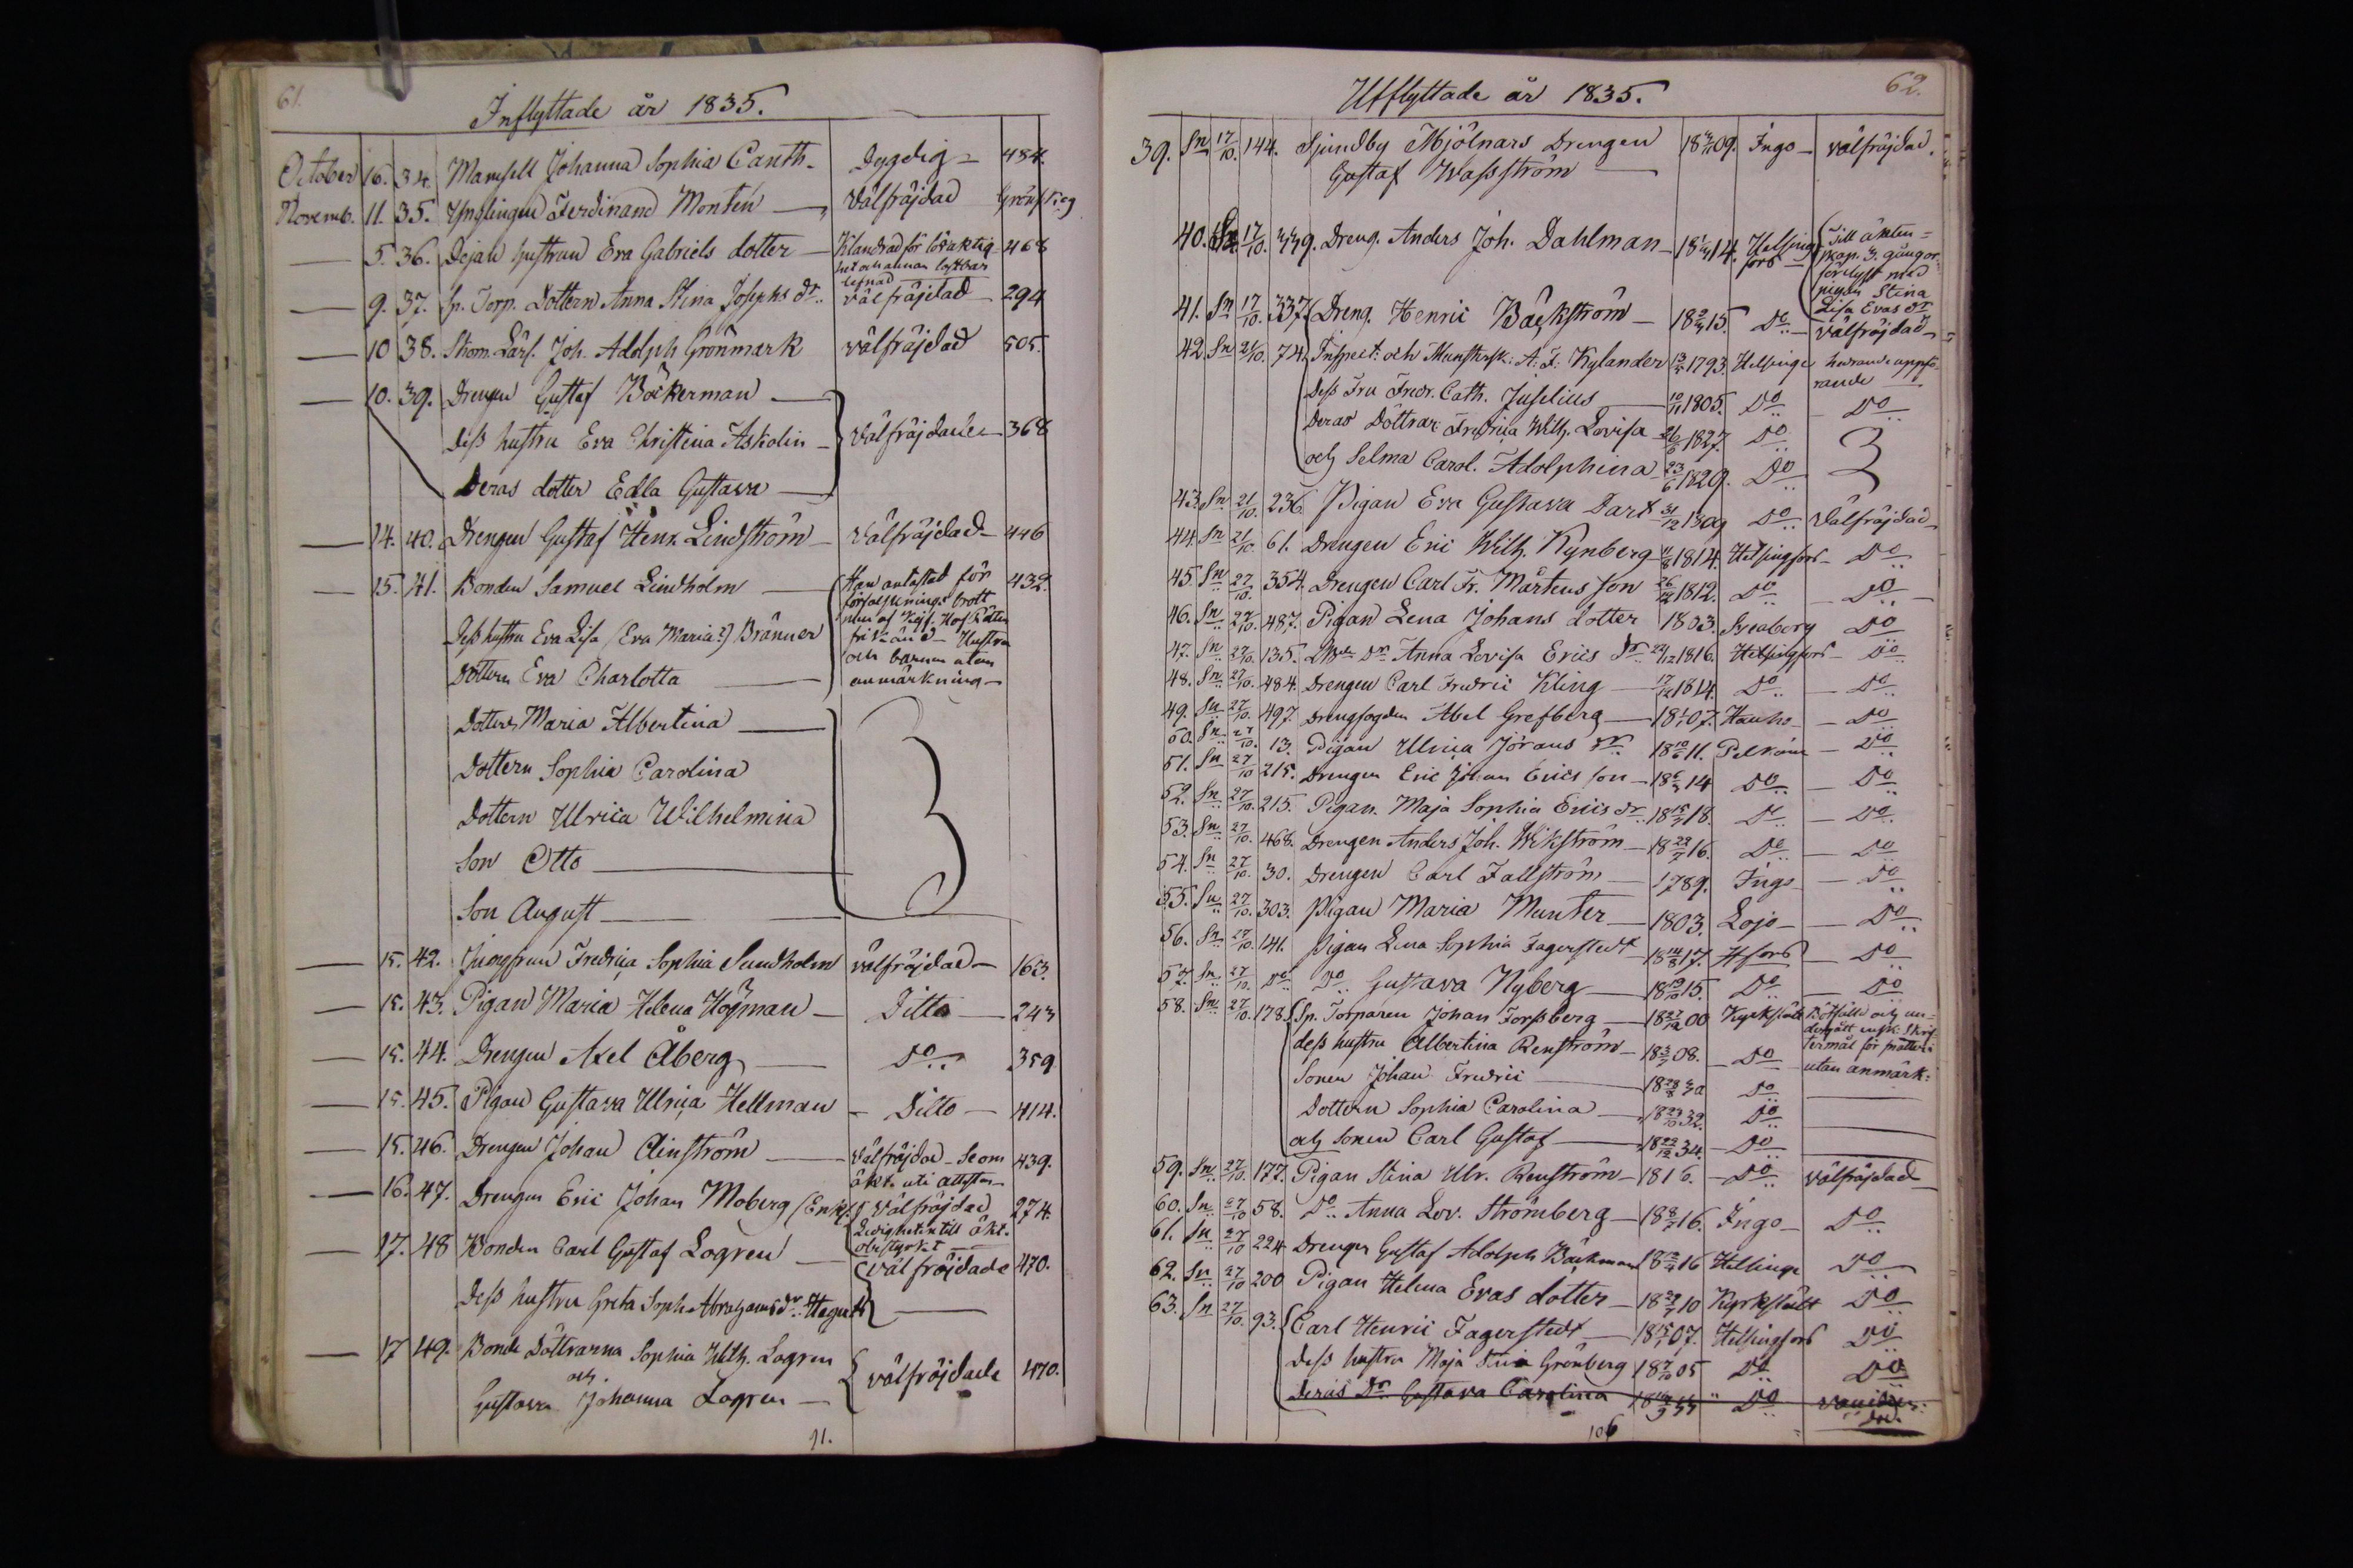 61.
Inflyttade år 1835.
October 16. 34. Mamsell Johanna Sophia Canth - Dygdig - 484.
Novemb. 11. 35. Ynglingen Ferdinand Montén - Välfräjdad
5. 36. Dejan hustrun Eva Gabriels dotter - Klandrad för lösaktig- 468
het och annan
lefnad
9. 37. Sp. Torp. Dottern Anna Stina Josephs dr. välfräjdad - 294
10 38. Skom. Lärl. Joh. Adolph Grönmark välfräjdad 505.
10. 39. Drengen Gustaf Böckerman
Dess hustru Eva Christina Askolin - Välfräjdade - 368
Deras dotter Edla Gustava
14. 40. Drengen Gustaf Henr. Lindström - Välfräjdad - 446
15. 41. Bonden Samuel Lindholm - Han antastad för 432.
förfalsknings brott
men af Kejs. Hof Rätten
Dess hustru Eva Lisa (Eva Maria?) Bränner frikänd - Hustru
och barnen utan
Dottern Eva Charlotta - anmärkning -
Dottern Maria Albertina
Dottern Sophia Carolina
Dottern Ulrica Wilhelmina
Son Otto
Son August
15. 42. Jungfrun Fredrica Sophia Sundholm välfräjdad - 163.
15. 43. Pigan Maria Helena Högman - Ditto - 243
15. 44. Drengen Axel Åberg - Do - 359
15. 45. Pigan Gustava Ulrica Hellman - Ditto - 414.
15. 46. Drengen Johan Clinström - Välfräjdad - Se om 439.
äkt. uti attesten
16. 47. Drengen Eric Johan Moberg (Enkl. Välfräjdad 274.
Ledigheten till äkt.
obestyrkt
17. 48 Bonden Carl Gustaf Logren - välfräjdade 470.
Dess hustru Greta Soph. Abrahams dr.
17 49. Bonde Döttrarna Sophia Wilh. Logren
och välfräjdade 470.
Gustava Johanna Logren -
91.
62.
Utflyttade år 1835.
39. Sn 17/10. 144. Sjundby Mjölnars Drengen 1809. Ingo - välfräjdad.
Gustaf Wasström
40. Sn 17/10. 449. Dreng. Anders Joh. Dahlman - 1814. Helsing- Till äkten-
fors skap 3. gångor
förelyst med
pigan Stina
Lisa Evas dr
41. Sn 17/10. 337. Dreng. Henric Bäckström - 1815. Do - välfräjdad -
42. Sn 21/10. 74. Inspect. och Munstersk. A. F. Kylander 1793. Helsinge hedrande uppfö-
rande
Dess Fru Fredr. Cath. Juselius 10/11 1805. Do - Do
Deras Döttrar Fredrica Wilh. Lovisa 26/6 1827. Do
och Selma Carol. Adolphina 23/6 1829. Do
43. Sn 21/10. 236. Pigan Eva Gustava Dart 31/12 1809 Do Välfräjdad
44. Sn 21/10 61. Drengen Eric Wilh. Kynberg 11/8 1814. Helsingfors - Do
45. Sn 27/10. 354. Drengen Carl Fr. Mårtensson 26/12 1812. Do - Do
46. Sn 27/10. 487. Pigan Lena Johans dotter 1803. Sveaborg Do
47. Sn 27/10. 135. Anna Lovisa Erics dr 22/12 1816. Helsingfors - Do
48. Sn 27/10. 484. Drengen Carl Fredric Kling - 17/12 1814. Do - Do
49. Sn 27/10. 497. Drengfogden Abel Grefberg - 1807. Hauho - Do
50. Sn 27/10. 13. Pigan Ulrica Jörans dr 18 10/6 11. Pelkäne - Do
51. Sn 27/10 215. Drengen Eric Johan Ericsson - 1814 Do - Do
52. Sn 27/10. 215. Pigan Maja Sophia Erics dr 1818. Do - Do
53. Sn 27/10. 468. Drengen Anders Joh. Wikström - 1816. Do - Do
54. Sn 27/10. 30. Drengen Carl Fallström - 1789. Ingo - Do
55. Sn 27/10. 303. Pigan Maria Munter - 1803. Lojo - Do
56. Sn 27/10. 141. Pigan Lena Sophia Fagerstedt 18 14/8 17. Hfors - Do
57. Sn 27/10. Do Do Gustava Nyberg - 1815. Do - Do
58. Sn 27/10. 178. Sp. Torparen Johan Forssberg - 1800 Kyrkslätt Bötfälld och un-
dergått enskilt Skrif-
dess hustru Albertina Renström - 1808. - Do termål för
utan anmärk.
Sonen Johan Fredric 1830 Do
Dottern Sophia Carolina - 18 29/10 32. Do
och sonen Carl Gustaf - 18 22/12 34. - Do
59. Sn 27/10. 177. Pigan Stina Ulr. Renström - 1816. - Do välfräjdad
60. Sn 27/10 58. Do Anna Lov. Strömberg - 1816. Ingo - Do
61. Sn 27/10 224 Drengen Gustaf Adolph Bäckman 1816 Helsinge Do
62. Sn 27/10 200 Pigan Helena Evas dotter - 1810 Kyrkslätt Do
63. Sn 27/10. 93. Carl Henric Fagerstedt - 1807. Helsingfors Do
dess hustru Maja Stina Grönberg 1805 Do Do
deras Dr Gustava Carolina Do
död.
106